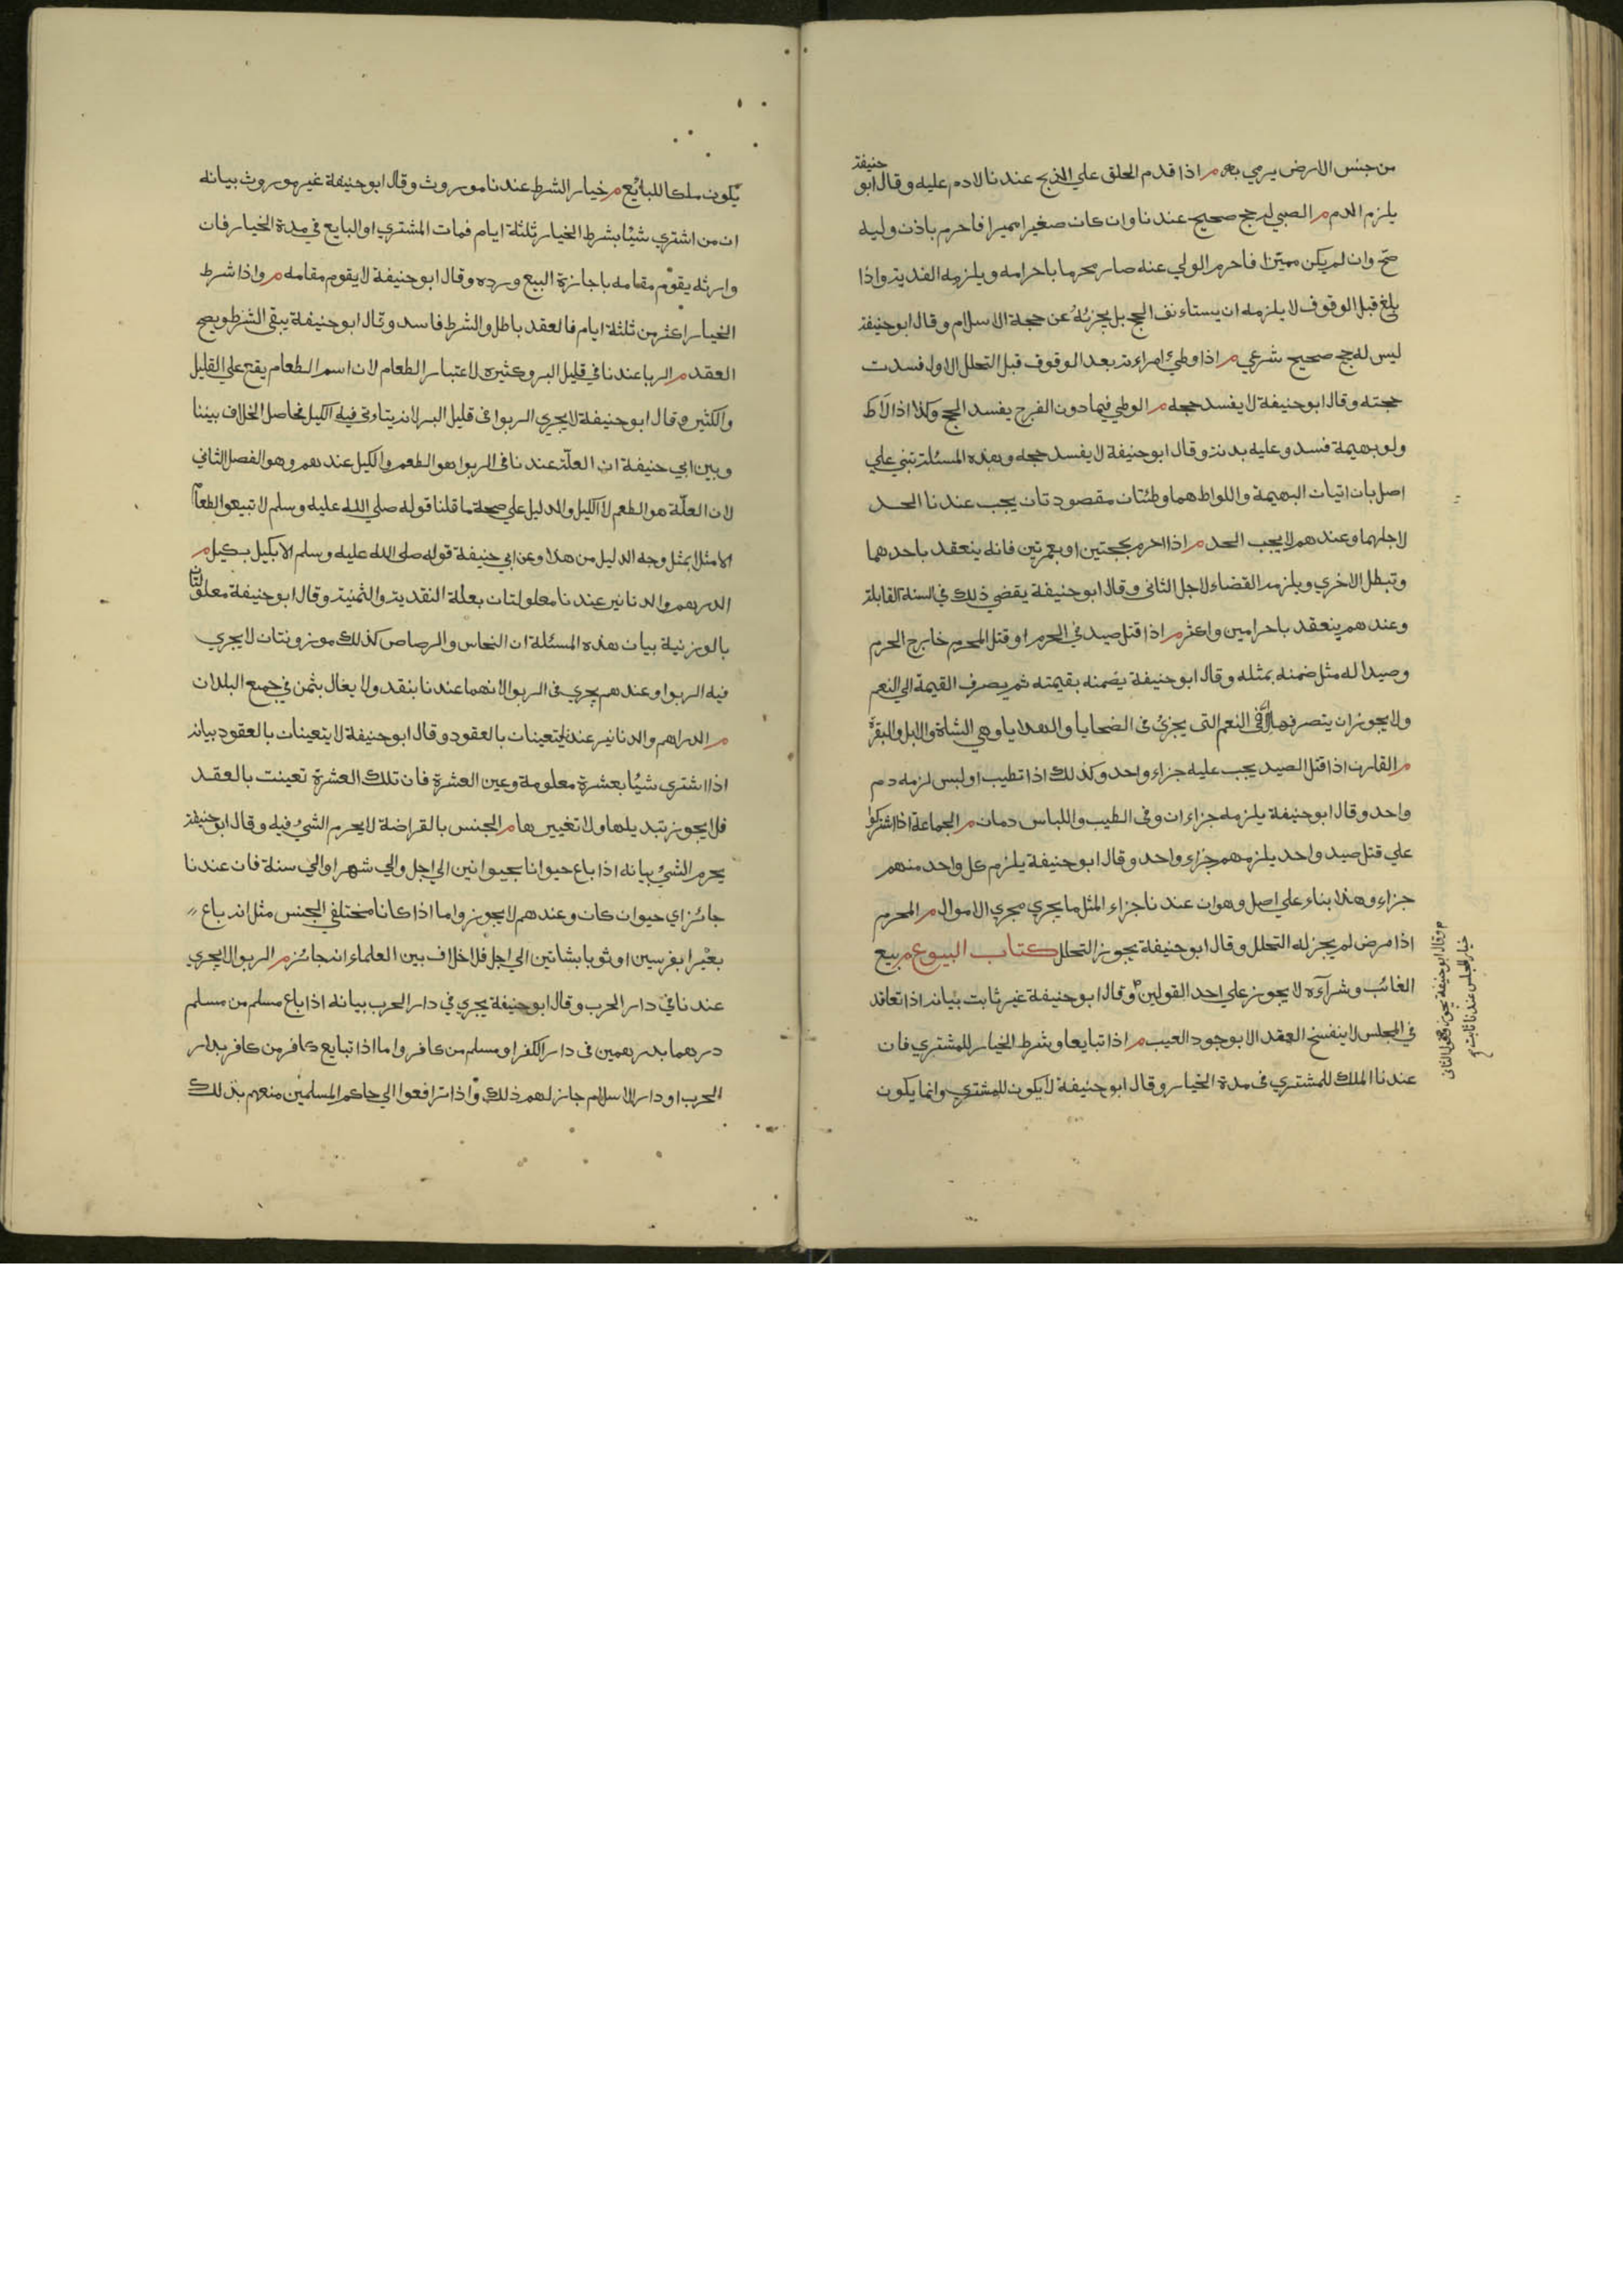 من جنس الارض يرمي به م اذا قدم الحلق علي الذبح عندنا لادم عليه وقال ابو حنيفة
يلزم الدم م الصبي له حج صحيح عندنا وان كان صغيرا مميزا فاحرم باذن وليه
صح وان لم يكن مميزا فاحرم الولي عنه صار محرما باحرامه ويلزمه الفدية واذا
بلغ قبل الوقوف لا يلزمه ان يستاءنف الحج بل يجزئه عن حجة الاسلام وقال ابو حنيفة
ليس له حج صحيح شرعي م اذا وطئ امراءته بعد الوقوف قبل التحلل الاول فسدت
حجته وقال ابو حنيفة لا يفسد حجه م الوطي فيما دون الفرج يفسد الحج وكذا اذا لاط
ولو بهيمة فسد وعليه بدنة وقال ابو حنيفة لا يفسد حجه وهذه المسئلة تبني علي
اصل بان اتيان البهيمة واللواط هما وطئتان مقصودتان يجب عندنا الحد
لاجلهما وعندهم لا يجب الحد م اذا احرم بحجتين او بعمرتين فانه ينعقد باحدهما
وتبطل الاخري ويلزمه القضاء لاجل الثاني وقال ابو حنيفة يقضي ذلك في السنة القابلة
وعندهم ينعقد باحرامين واكثر م اذا قتل صيد في الحرم او قتل المحرم خارج الحرم
وصيدا له مثل ضمنه بمثله وقال ابو حنيفة يضمنه بقيمته ثم يصرف القيمة الي النعم
ولا يجوز ان يتصرفها الا في النعم التي يجزئ في الضحايا والهدايا وهي الشاة والابل والبقرة
م القارن اذا قتل الصيد يجب عليه جزاء واحد وكذلك اذا تطيب او لبس لزمه دم
واحد وقال ابو حنيفة يلزمه جزاءان وفي الطيب واللباس دمان م الجماعة اذا اشتركوا
علي قتل صيد واحد يلزمهم جزاء واحد وقال ابو حنيفة يلزم كل واحد منهم
جزاء وهذا بناء علي اصل وهو ان عندنا جزاء المثل ما يجري مجري الاموال م المحرم
اذا مرض لم يجز له التحلل وقال ابو حنيفة يجوز التحلل كتاب البيوع م بيع
الغائب وشرآءه لا يجوز علي احد القولين وقال ابو حنيفة غير ثابت بيانه اذا تعاقد
في المجلس لا ينفسخ العقد الا بوجود العيب م اذا تبايعا وشرط الخيار للمشتري فان
عندنا الملك للمشتري في مدة الخيار وقال ابو حنيفة لا يكون للمشتري وانما يكون
م وقال ابو حنيفة يجوز وهو القول الثاني
خيار المجلس عندنا ثابت صح
يكون ملكا للبائع م خيار الشرط عندنا موروث وقال ابو حنيفة غير موروث بيانه
ان من اشتري شيئا بشرط الخيار ثلثة ايام فمات المشتري او البايع في مدة الخيار فان
وارثه يقوم مقامه باجازة البيع ورده وقال ابو حنيفة لا يقوم مقامه م واذا شرط
الخيار اكثر من ثلثة ايام فالعقد باطل والشرط فاسد وقال ابو حنيفة يبقي الشرط ويصح
العقد م الربا عندنا في قليل البر وكثيره لاعتبار الطعام لان اسم الطعام يقع علي القليل
والكثير وقال ابو حنيفة لا يجري الربوا في قليل البر لانه يتاوتي فيه الكيل فحاصل الخلاف بيننا
وبين ابي حنيفة ان العلة عندنا في الربوا هو الطعم والكيل عندهم وهو الفصل الثاني
لان العلة هو الطعم لا الكيل والدليل علي صحة ما قلنا قوله صلي الله عليه وسلم لا تبيعوا الطعام
الا مثلا بمثل وجه الدليل من هذا وعن ابي حنيفة قوله صلي الله عليه وسلم الا بكيل بكيل م
الدرهم والدنانير عندنا معلولتان بعلة النقدية والثمنية وقال ابو حنيفة معلولتان
بالوزنية بيان هذه المسئلة ان النحاس والرصاص كذلك موزونتان لا يجري
فيه الربوا وعندهم يجري في الربوا لانهما عندنا بنقد ولا يغال بثمن في جميع البلدان
م الدراهم والدنانير عندنا يتعينات بالعقود وقال ابو حنيفة لا يتعينات بالعقود بيانه
اذا اشتري شيئا بعشرة معلومة وعين العشرة فان تلك العشرة تعينت بالعقد
فلا يجوز تبديلها ولا تغييرها م الجنس بالقراضة لا يحرم الشئ فيه وقال ابو حنيفة
يحرم الشئ بيانه اذا باع حيوانا بحيوانين الي اجل والي شهر او الي سنة فان عندنا
جائز اي حيوان كان وعندهم لا يجوز واما اذا كانا مختلفي الجنس مثل انه باع
بعيرا بفرسين او ثوبا بشاتين الي اجل فلا خلاف بين العلماء انه جائز م الربوا لا يجري
عندنا في دار الحرب وقال ابو حنيفة يجري في دار الحرب بيانه اذا باع مسلم من مسلم
درهما بدرهمين في دار الكفر او مسلم من كافر واما اذا تبايع كافر من كافر بدار
الحرب او دار الاسلام جاز لهم ذلك واذا ترافعوا الي حاكم المسلمين منعهم بذلك